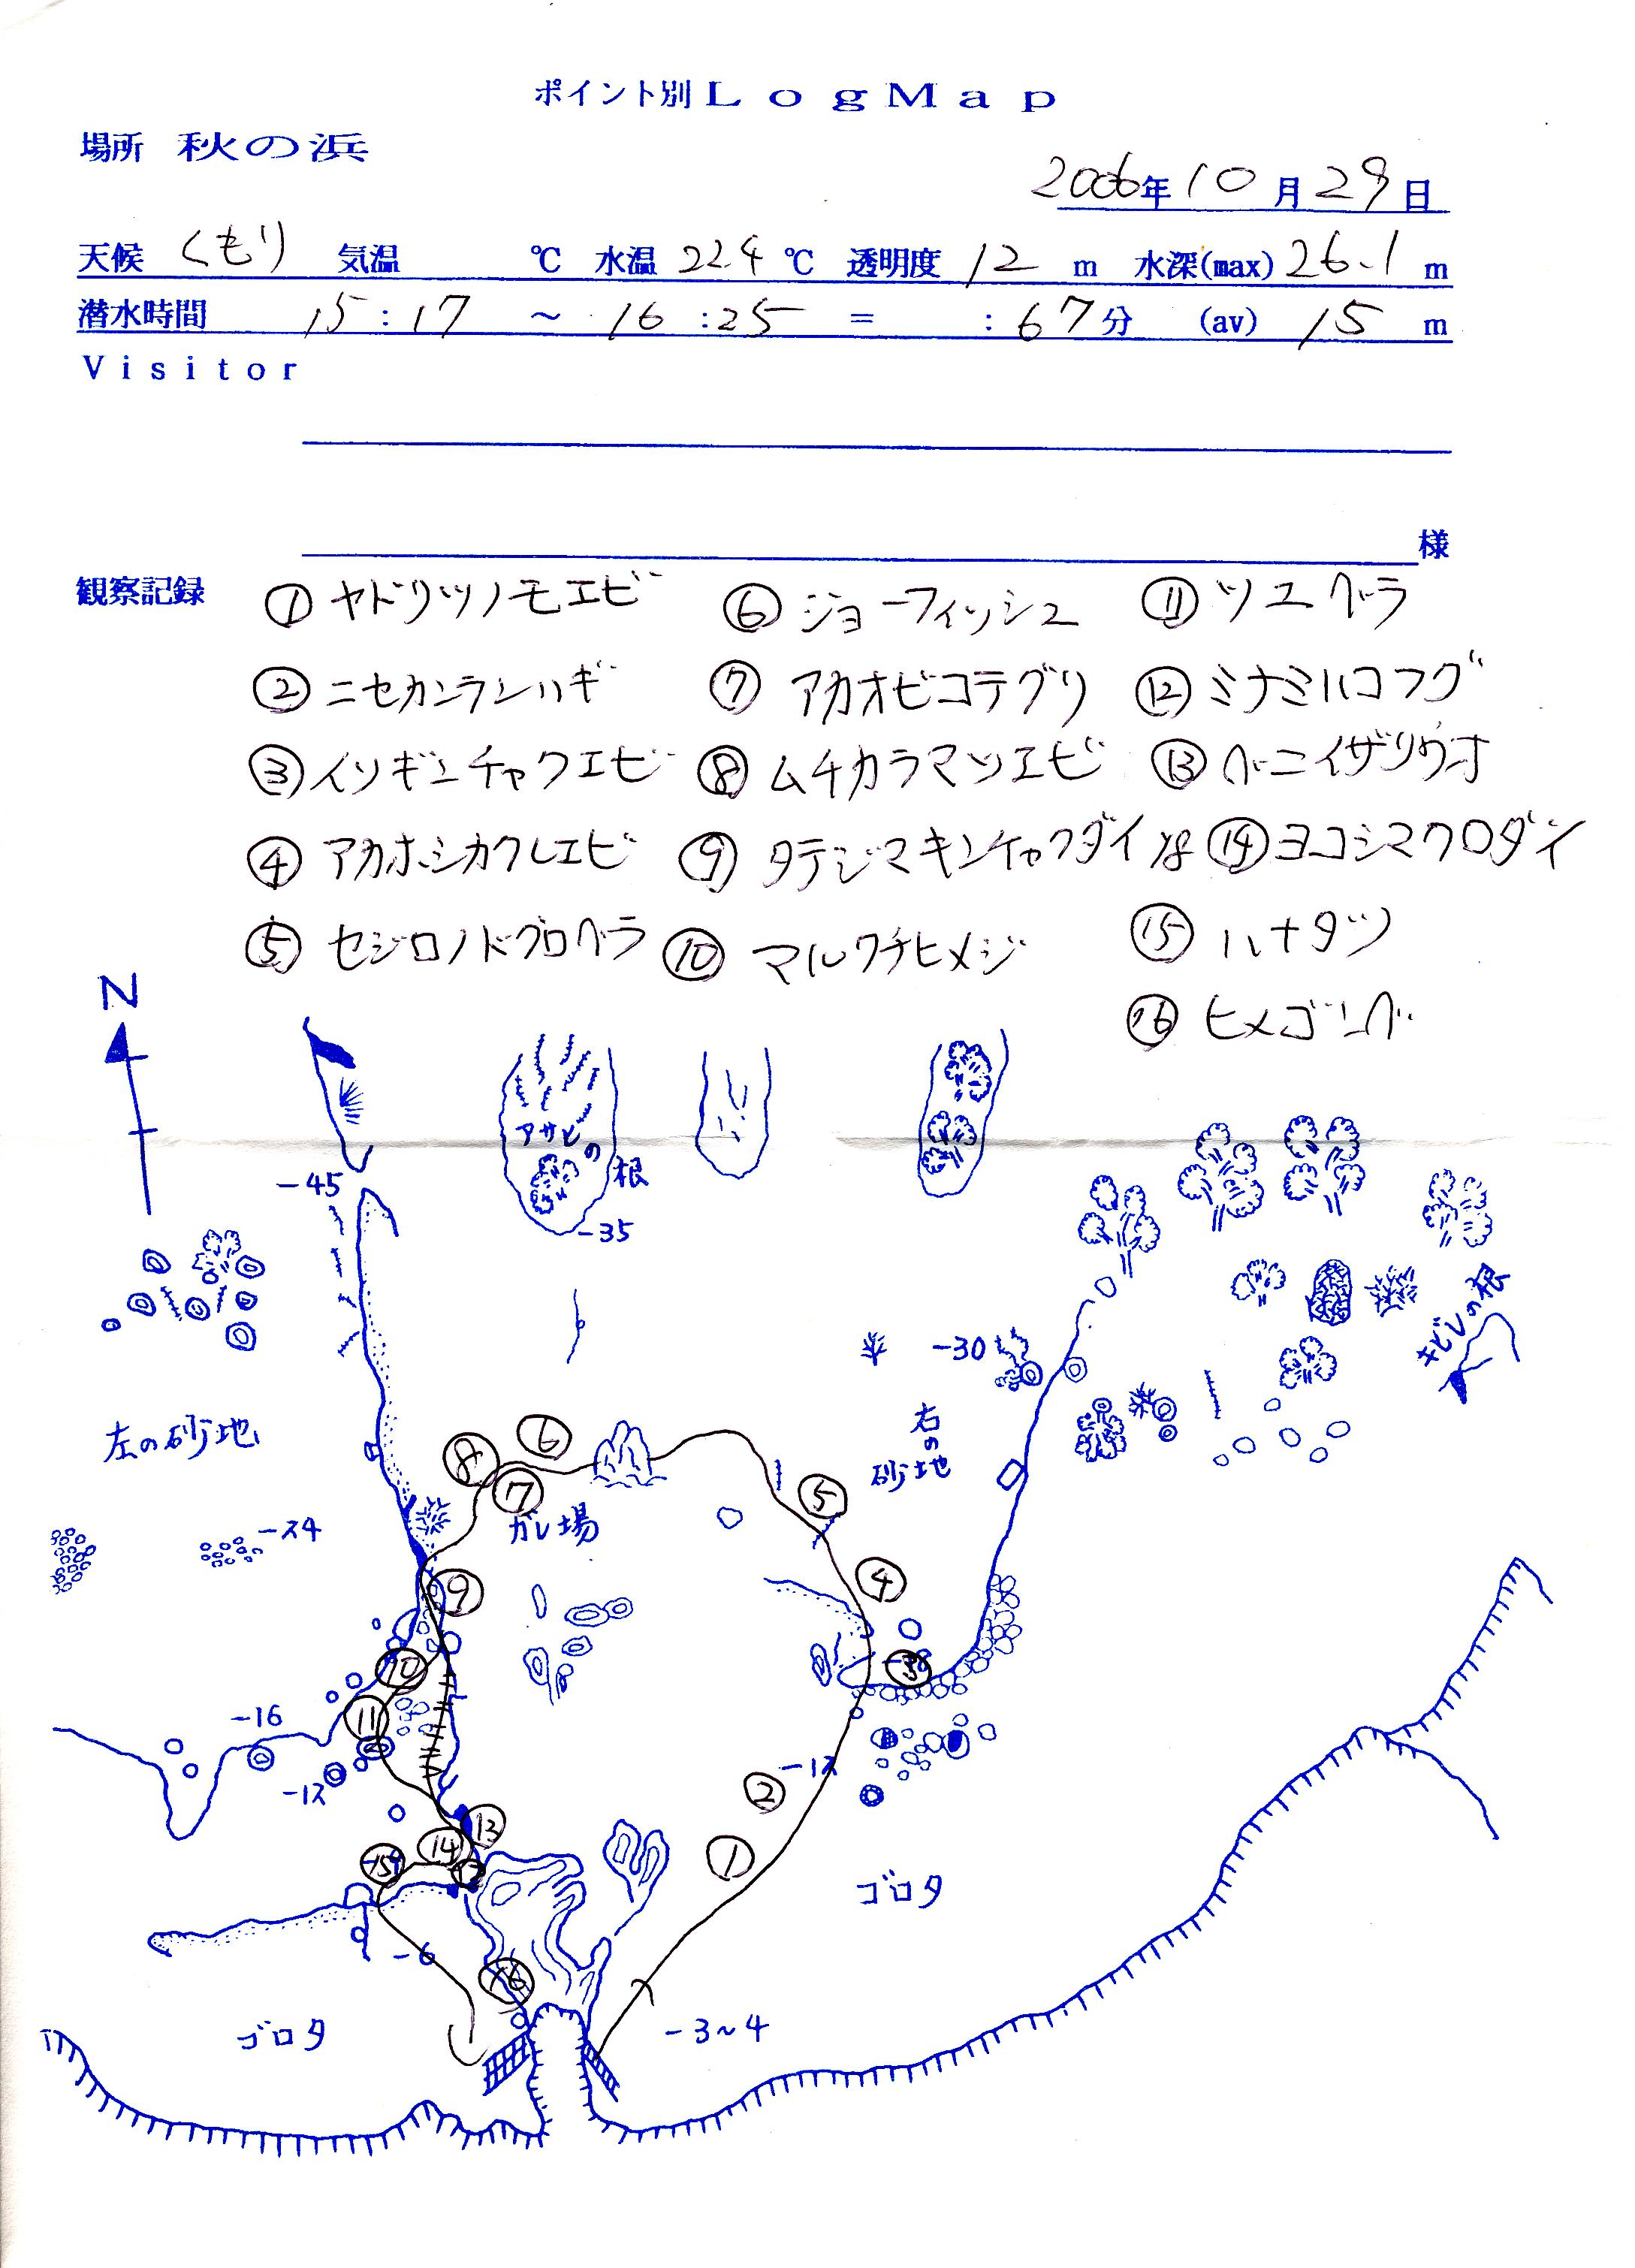 ポイント別LogMap
場所 秋の浜
2006年10月29日
天候 くもり 気温 ℃ 水温 22.4 ℃ 透明度 12 m 水深(max) 26.1 m
潜水時間 15:17 ～ 16:25 = : 67分 (av) 15 m
Visitor
様
観察記録 ① ヤドリツノモエビ ⑥ ジョーフィッシュ ⑪ ツユベラ
② ニセカンランハギ ⑦ アカオビコテグリ ⑫ ミナミハコフグ
③ イソギンチャクエビ ⑧ ムチカラマツエビ ⑬ ベニイザリウオ
④ アカホシカクレエビ ⑨ タテジマキンチャクダイ ⑭ ヨコシマクロダイ
⑤ セジロノドグロベラ ⑩ マルクチヒメジ ⑮ ハナタツ
⑯ ヒメゴンベ
N
アサヒの根
-45
-35
キビレの根
-30
左の砂地
右の砂地
⑥
⑧
⑦
⑤
ガレ場
-24
④
⑨
⑩
⑪
-16
-12
②
-12
①
⑬
⑭
ゴロタ
-6
⑯
ゴロタ
-3~4